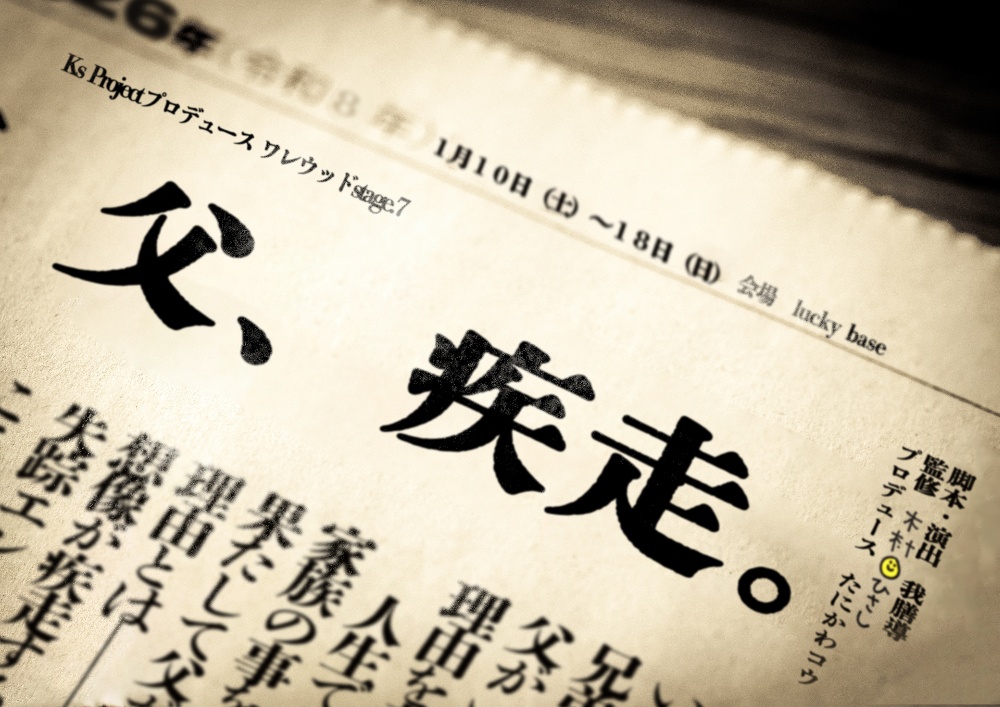 26年(令和8年)1月10日(土)〜18日(日) 会場 lucky base
Ks Projectプロデュース ワレワッドstage.7
父、 疾走。
脚本・演出 我膳導
監修 木村☺ひさし
プロデュース たにかわコウ
兄
父が
理由を
人生で
家族の事
果たして父
理由とは
想像が
失踪エン
疾走す
こ